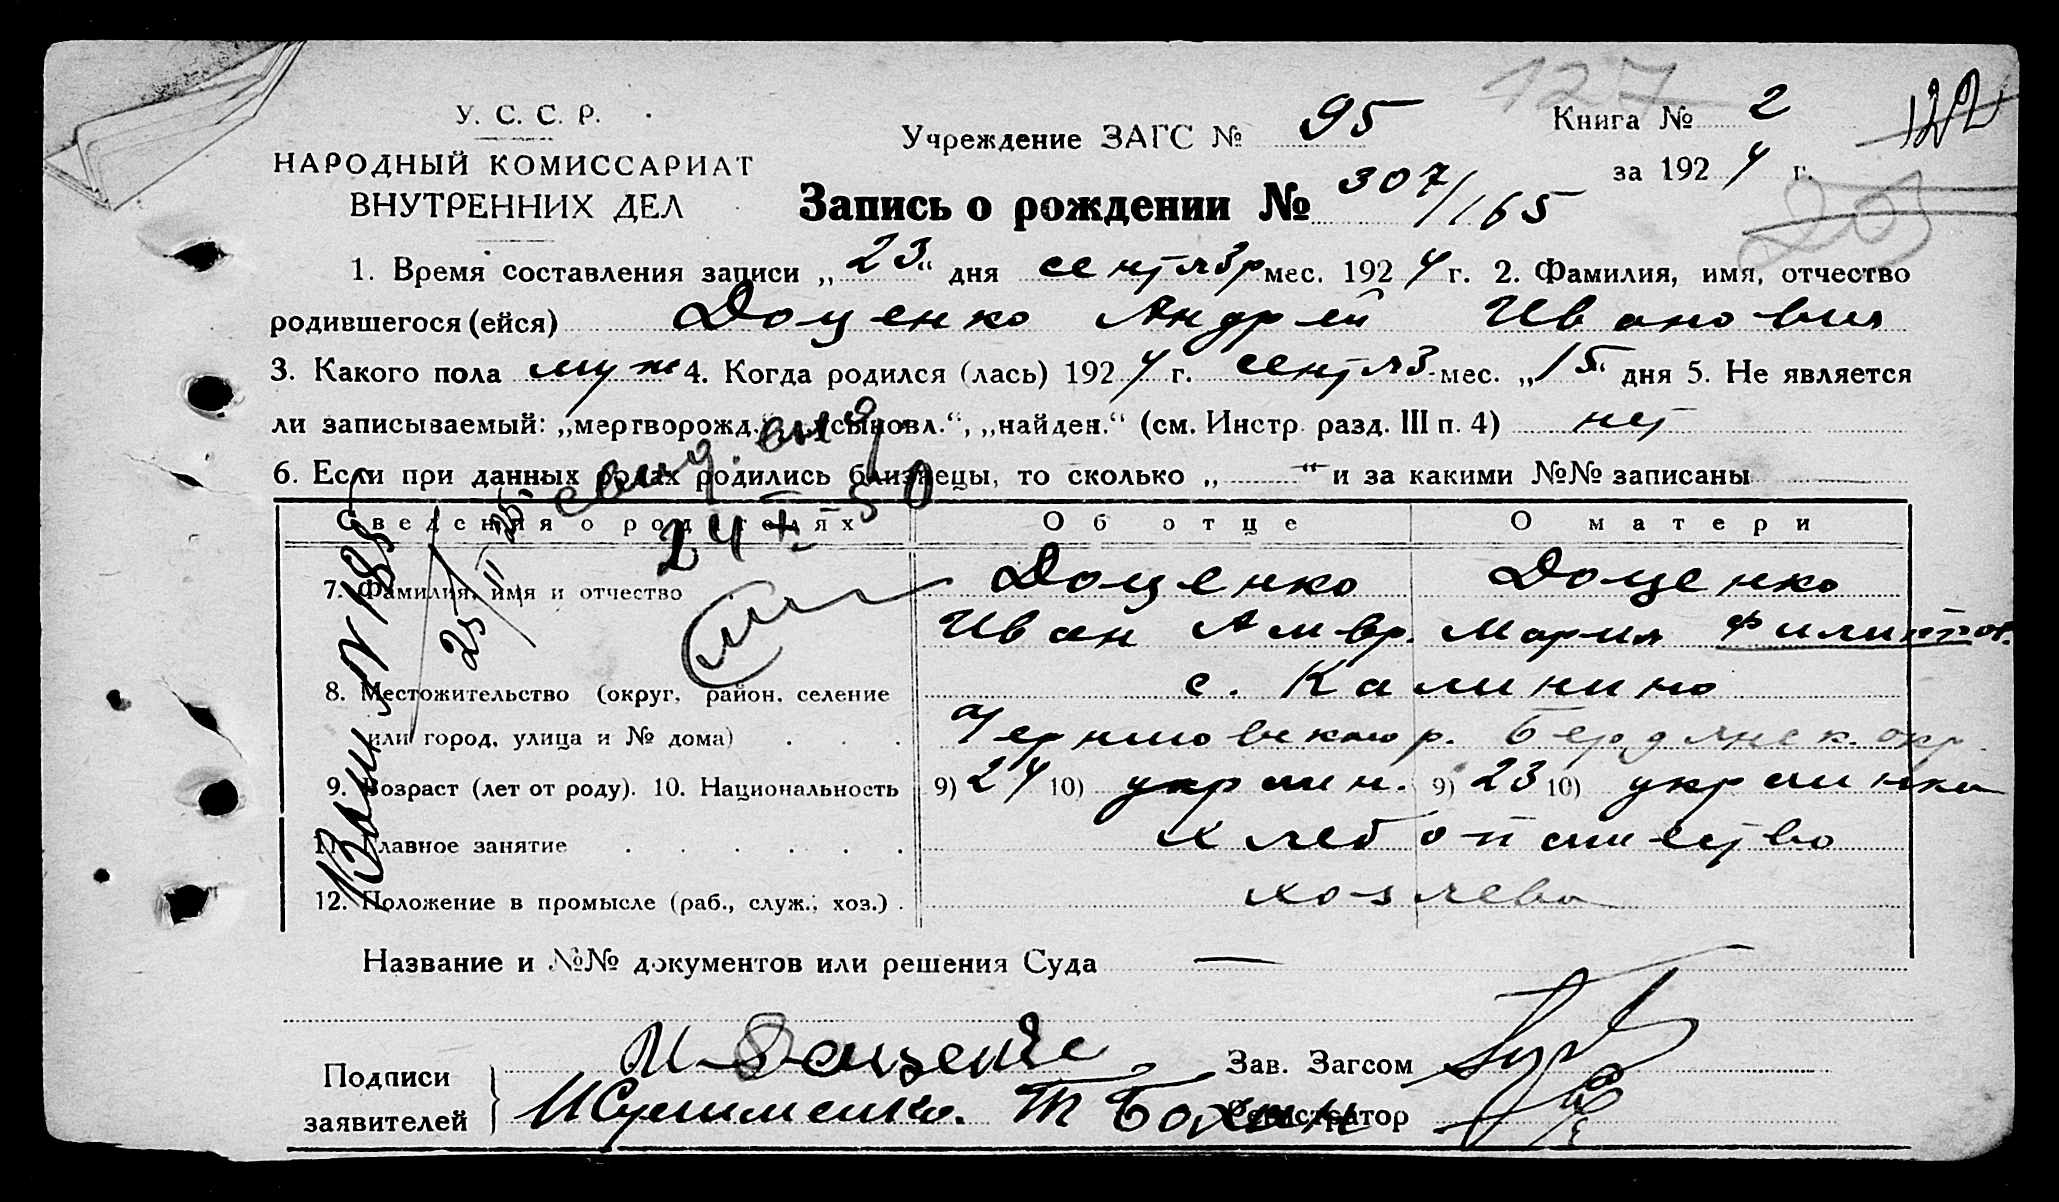 127
122
У. С. С. Р.
НАРОДНЫЙ КОМИССАРИАТ
ВНУТРЕННИХ ДЕЛ
Учреждение ЗАГС № 95
Книга № 2
за 1924 г.
Запись о рождении № 307/165
203
1. Время составления записи „23“ дня сентябр мес. 1924 г. 2. Фамилия, имя, отчество
родившегося (ейся) Доценко Андрей Иванович
3. Какого пола муж 4. Когда родился (лась) 1924 г. сентяб. мес. „15“ дня 5. Не является
ли записываемый: „мертворожд.“, „усыновл.“, „найден.“ (см. Инстр. разд. III п. 4) нет
6. Если при данных родах родились близнецы, то сколько „ — “ и за какими №№ записаны —
Сведения о родителях Об отце О матери
7. Фамилия, имя и отчество Доценко Доценко
Иван Амвр. Мария Филиппов.
8. Местожительство (округ, район, селение с. Калинино
или город, улица и № дома) . . . р. Бердянск. окр.
9. Возраст (лет от роду). 10. Национальность 9) 24 10) украин. 9) 23 10) украинка
11. Главное занятие . . . . . . хлебопашество
12. Положение в промысле (раб., служ., хоз.) . хозяева
Название и №№ документов или решения Суда —
Подписи
заявителей
И Доценко
Зав. Загсом
Регистратор